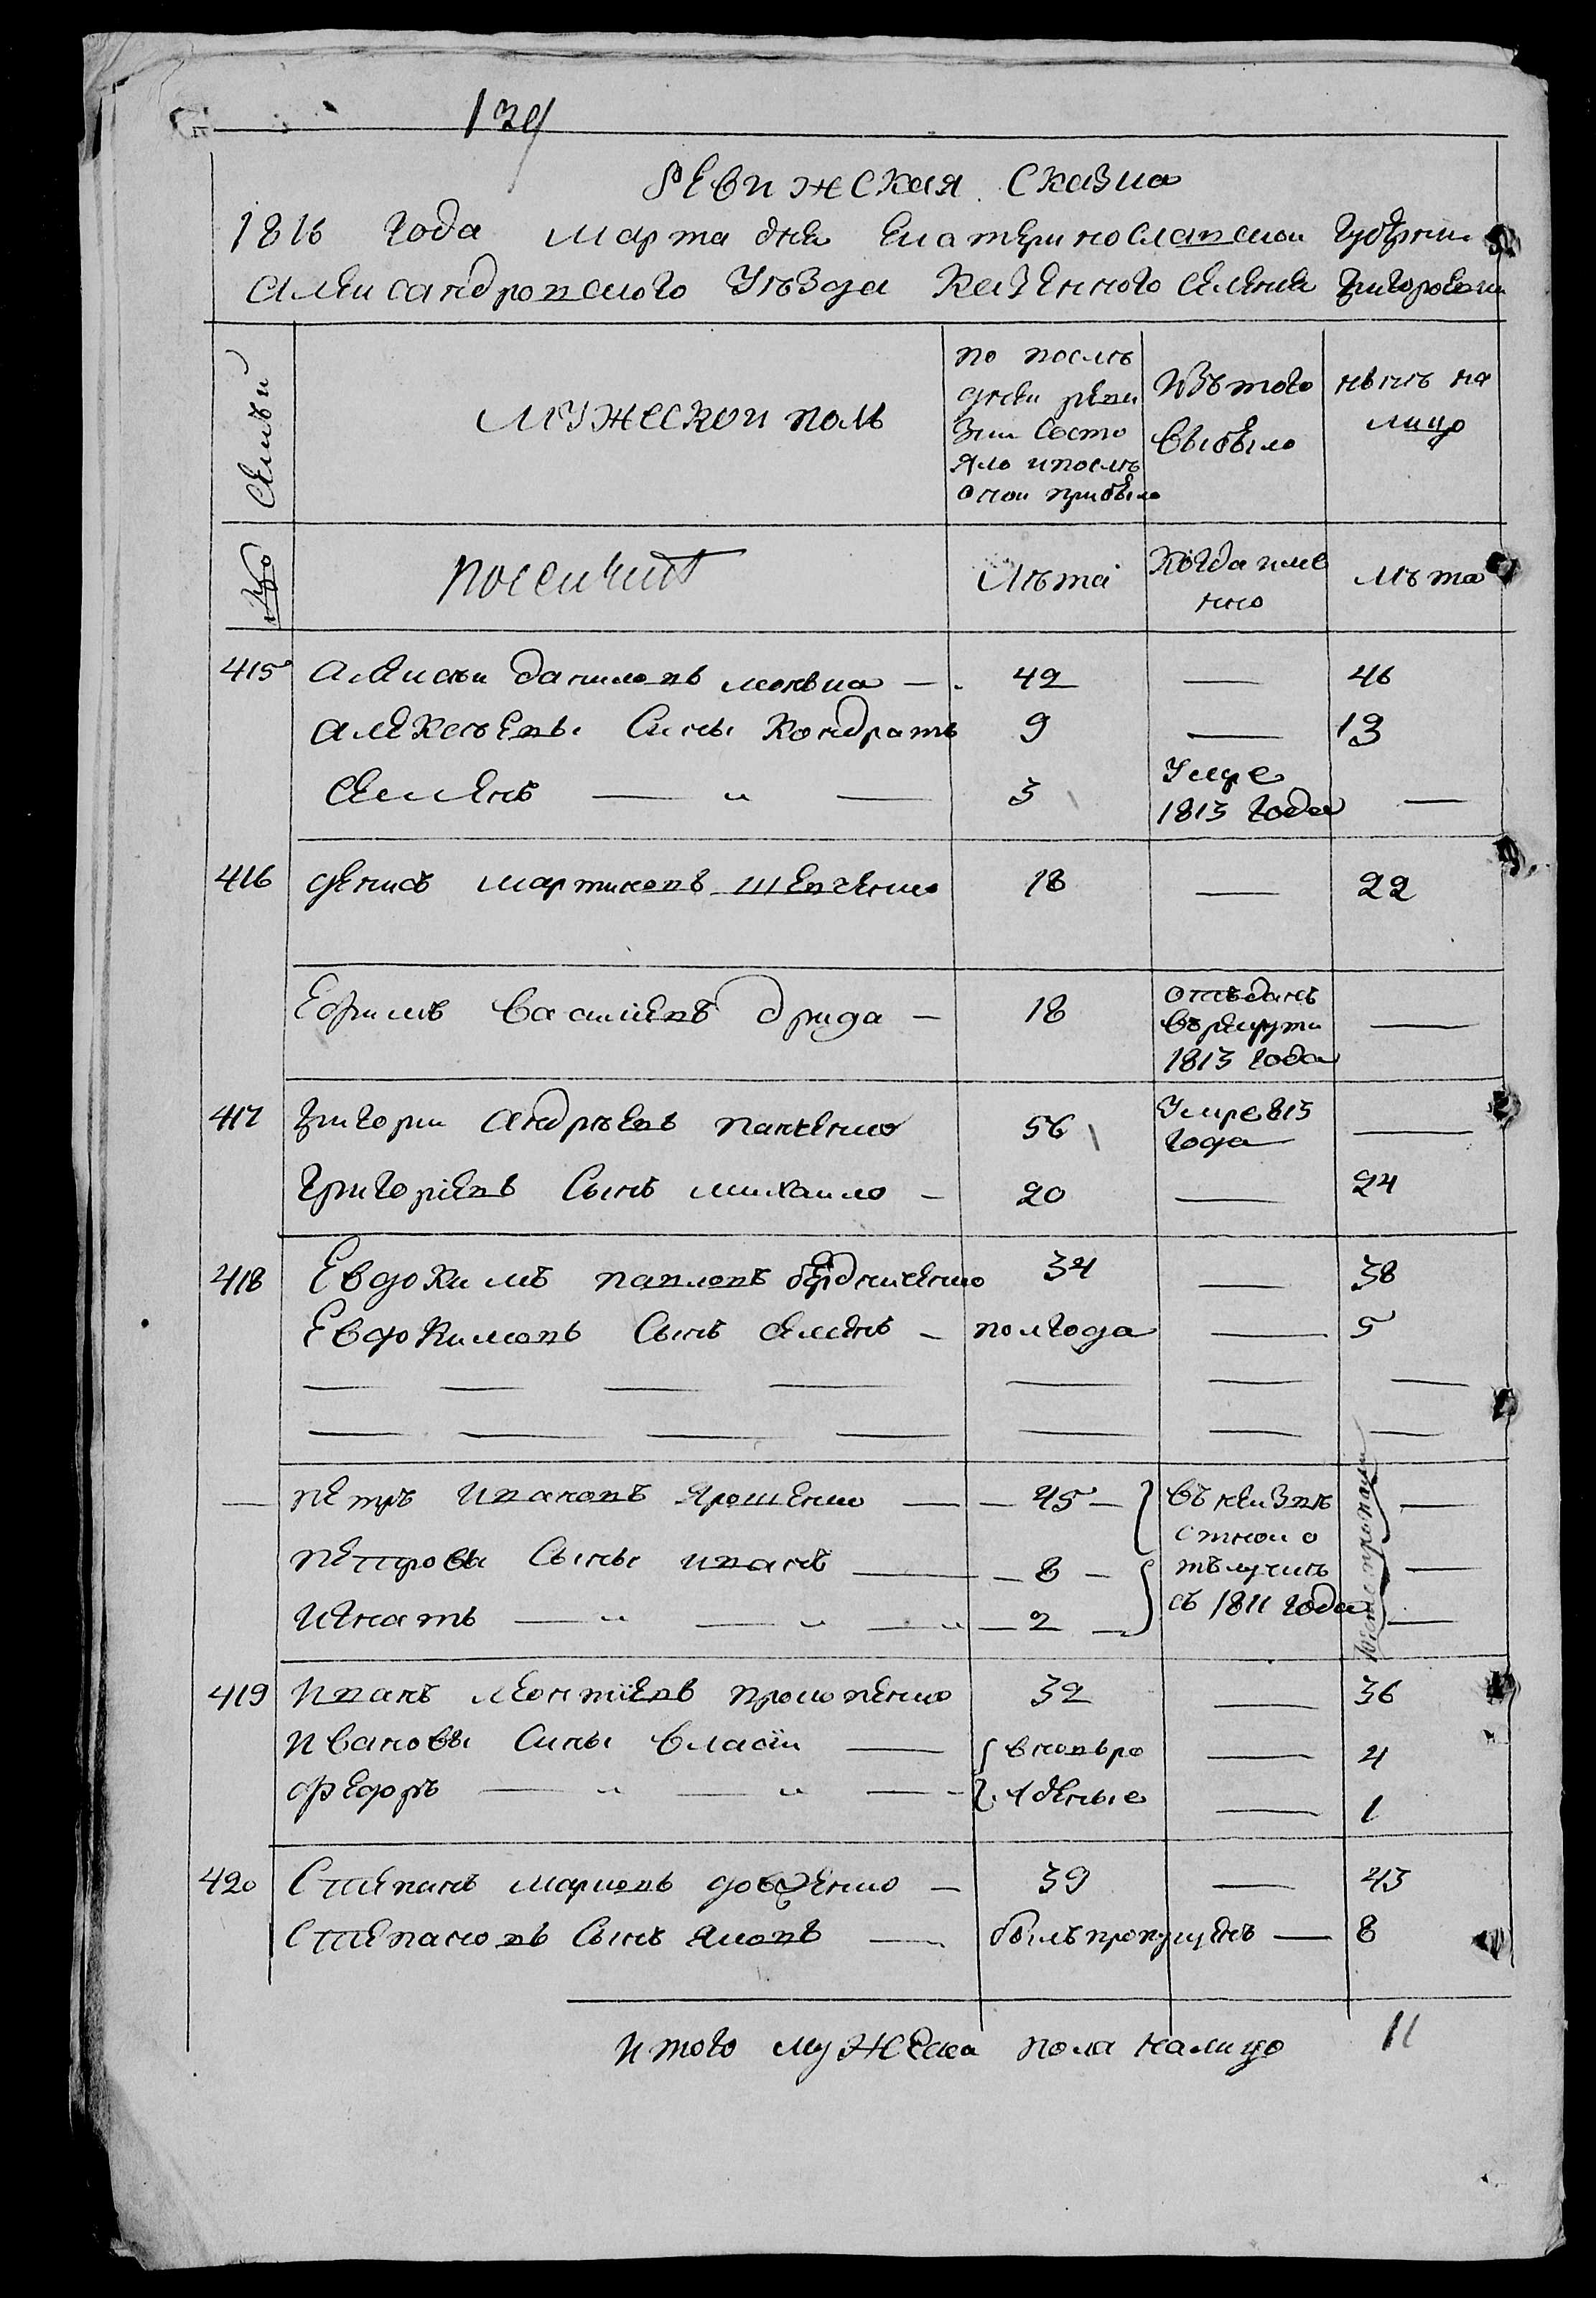 Ревижская Сказка
1816 года марта дня Екатеринославской Губернии
Александровского Уезда Казенного селения Григоровки
Семьи
Мужеской полъ
по после
дней реви
зии состо
яло и после
оной прибыло
Изъ того
выбыло
ныне на
лицо
№
Лета
Когда име
нно
Лета
415 Алексей Даниловъ — 42 — 46
Алексеевы Сины Кондратъ 9 — 13
Семенъ — „ — 3 Умре —
1813 года
416 Денисъ Мартиновъ Шевченко 18 — 22
Ефимъ Василиевъ Дрига — 18 отъданъ
въ рекруты —
1813 года
417 Григори Андреевъ Панченко 56 Умре 813
года —
Григориевъ Сынъ Михайло — 20 — 24
418 Евдокимъ Павловъ Бердниченко 34 — 38
Евдокимовъ Сынъ Семенъ — полгода — 5
— — — — — — —
— — — — — — —
— Петръ Ивановъ Ярошенко — 45 — въ неизве —
стной о
Петровы Сыны Иванъ — 8 — тълучке —
Игнатъ — „ — „ — 2 — съ 1811 года —
419 Иванъ Леонтиевъ Прокопенко 32 — 36
Ивановы Сины Власий — вновъро — 4
Федоръ — „ — „ — жденые — 1
420 Степанъ Марковъ Довженко — 39 — 43
Степановъ Сынъ Яковъ — былъ пропущенъ — 8
Итого мужеска пола налицо 11